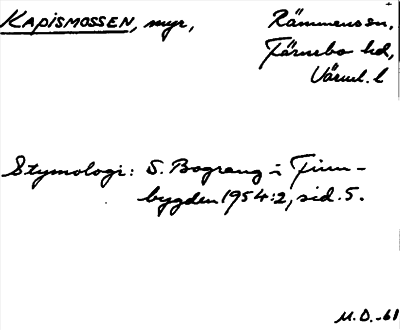 KAPISMOSSEN, myr, Rämmens sn,
Färnebo hd,
Värml. l
Etymologi: S. Bograng i Finn-
bygden 1954:2, sid. 5.
M.D.-61